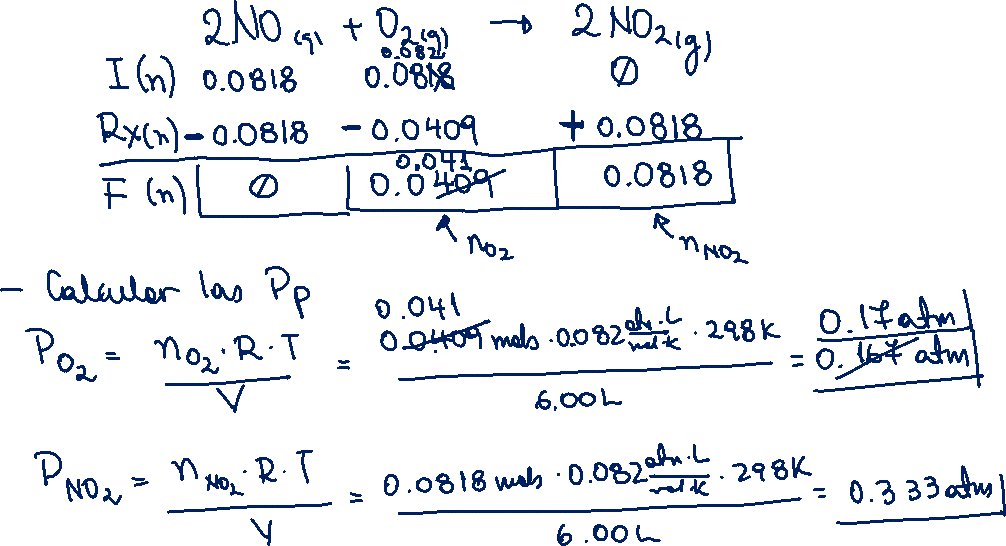 2NO (g) + O₂(g) → 2 NO₂(g)
0.082
I (n) 0.0818 0.0818 ∅
Rx(n) - 0.0818 - 0.0409 + 0.0818
0.041
F (n) ∅ 0.0409 0.0818
nO₂ nNO₂
- Calcular las Pp
0.041
P O₂ = nO₂·R·T / V = 0.0409 mols · 0.082 atm·L/mol·K · 298K / 6.00L = 0.17 atm
0.167 atm
P NO₂ = nNO₂·R·T / V = 0.0818 mols · 0.082 atm·L/mol·K · 298K / 6.00L = 0.333 atm